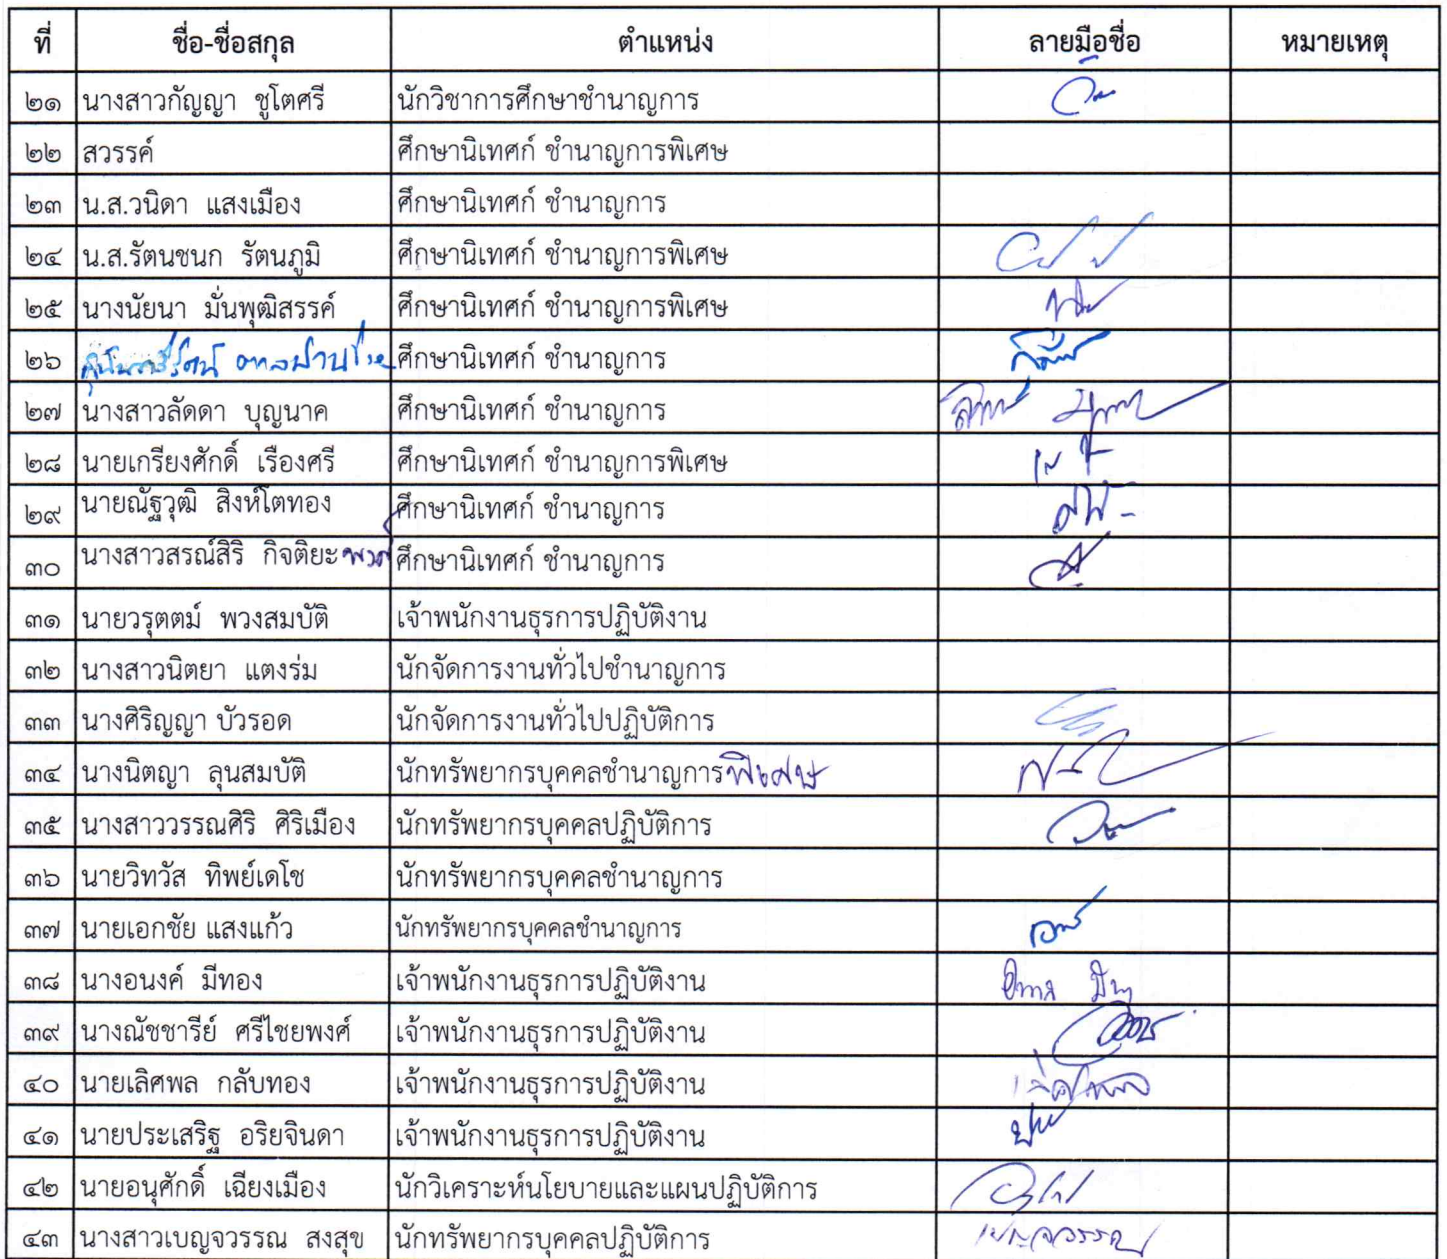 ที่ ชื่อ-ชื่อสกุล ตำแหน่ง ลายมือชื่อ หมายเหตุ
๒๑ นางสาวกัญญา ชูโตศรี นักวิชาการศึกษาชำนาญการ
๒๒ สวรรค์ ศึกษานิเทศก์ ชำนาญการพิเศษ
๒๓ น.ส.วนิดา แสงเมือง ศึกษานิเทศก์ ชำนาญการ
๒๔ น.ส.รัตนชนก รัตนภูมิ ศึกษานิเทศก์ ชำนาญการพิเศษ
๒๕ นางนัยนา มั่นพุฒิสรรค์ ศึกษานิเทศก์ ชำนาญการพิเศษ
๒๖ ศึกษานิเทศก์ ชำนาญการ
๒๗ นางสาวลัดดา บุญนาค ศึกษานิเทศก์ ชำนาญการ
๒๘ นายเกรียงศักดิ์ เรืองศรี ศึกษานิเทศก์ ชำนาญการพิเศษ
๒๙ นายณัฐวุฒิ สิงห์โตทอง ศึกษานิเทศก์ ชำนาญการ
๓๐ นางสาวสรณ์สิริ กิจติยะพงศ์ ศึกษานิเทศก์ ชำนาญการ
๓๑ นายวรุตตม์ พวงสมบัติ เจ้าพนักงานธุรการปฏิบัติงาน
๓๒ นางสาวนิตยา แตงร่ม นักจัดการงานทั่วไปชำนาญการ
๓๓ นางศิริญญา บัวรอด นักจัดการงานทั่วไปปฏิบัติการ
๓๔ นางนิตญา ลุนสมบัติ นักทรัพยากรบุคคลชำนาญการพิเศษ
๓๕ นางสาววรรณศิริ ศิริเมือง นักทรัพยากรบุคคลปฏิบัติการ
๓๖ นายวิทวัส ทิพย์เดโช นักทรัพยากรบุคคลชำนาญการ
๓๗ นายเอกชัย แสงแก้ว นักทรัพยากรบุคคลชำนาญการ
๓๘ นางอนงค์ มีทอง เจ้าพนักงานธุรการปฏิบัติงาน
๓๙ นางณัชชารีย์ ศรีไชยพงศ์ เจ้าพนักงานธุรการปฏิบัติงาน
๔๐ นายเลิศพล กลับทอง เจ้าพนักงานธุรการปฏิบัติงาน
๔๑ นายประเสริฐ อริยจินดา เจ้าพนักงานธุรการปฏิบัติงาน
๔๒ นายอนุศักดิ์ เฉียงเมือง นักวิเคราะห์นโยบายและแผนปฏิบัติการ
๔๓ นางสาวเบญจวรรณ สงสุข นักทรัพยากรบุคคลปฏิบัติการ เบญจวรรณ